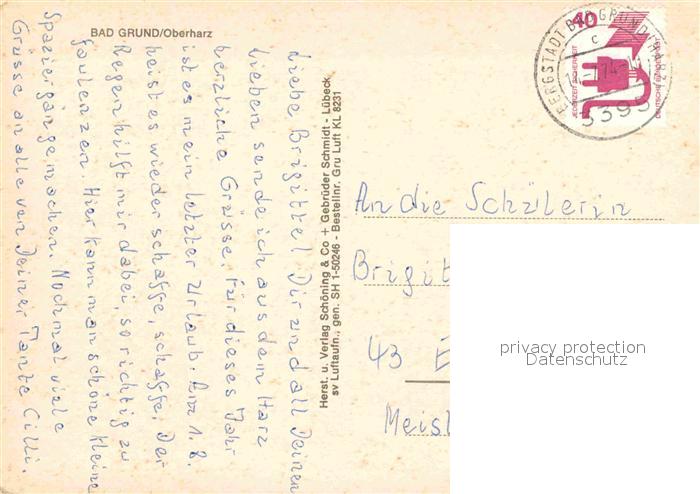 BAD GRUND/Oberharz
Liebe Brigitte! Dir und all Deinen
Lieben sende ich aus dem Harz
herzliche Grüsse. Für dieses Jahr
ist es mein letzter Urlaub. Am 1.8.
heist es wieder schaffe, schaffe. Der
Regen hilft mir dabei, so richtig zu
faulenzen. Hier kann man schöne kleine
Spaziergänge machen. Nochmal viele
Grüsse an alle von Deiner Tante Cilli.
Herst. u. Verlag Schöning & Co + Gebrüder Schmidt - Lübeck
sv Luftaufn., gen. SH 1-50246 - Bestellnr. Gru Luft KL 8231
40
JEDERZEIT SICHERHEIT
DEUTSCHE BUNDESPOST
BERGSTADT BAD GRUND
c
3395
An die Schülerin
Brigit
43 E
Meis
privacy protection
Datenschutz